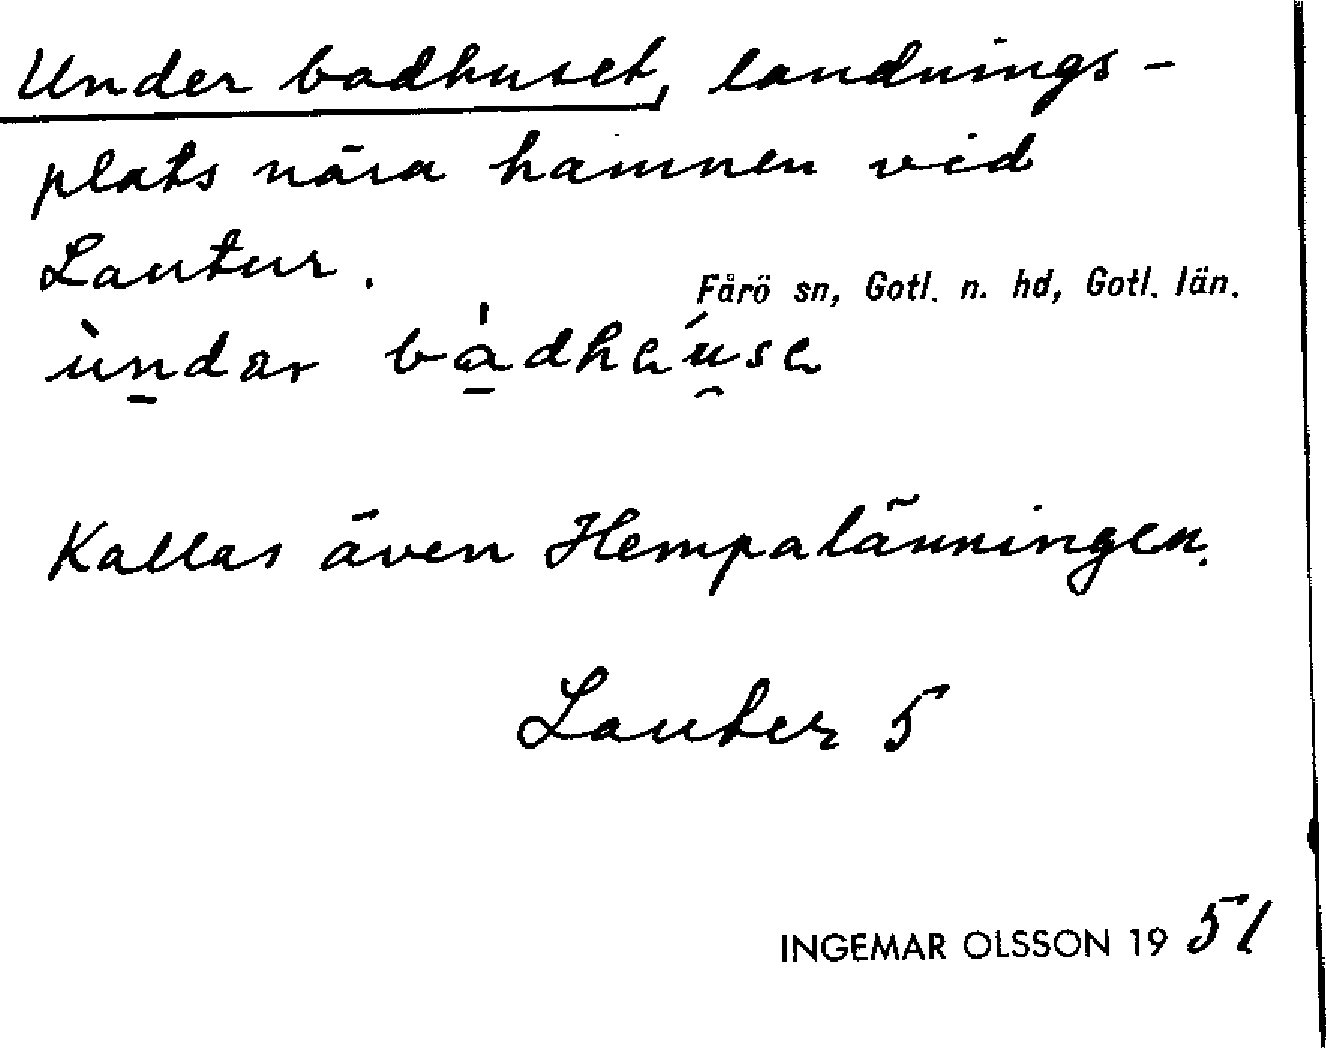 Under badhuset, landnings-
plats nära hamnen vid
Lautur.
Fårö sn, Gotl. n. hd, Gotl. län.
ùndar bàdhaúsa
Kallas även Hempalänningen.
Lauter 5
INGEMAR OLSSON 19 51